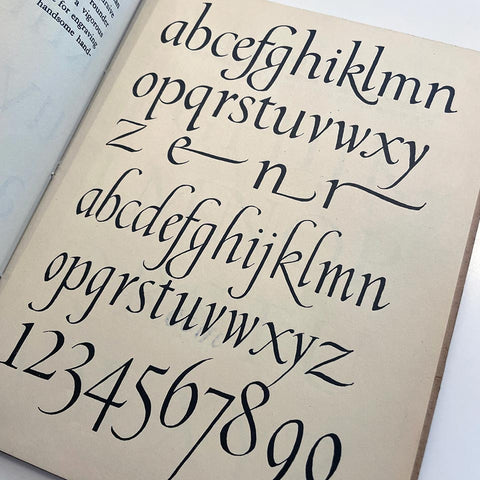 rounder
a vigorous
for engraving
handsome hand-
abcefghiklmn
opqrstuvwxy
z e n r
abcdefghijklmn
opqrstuvwxyz
1234567890